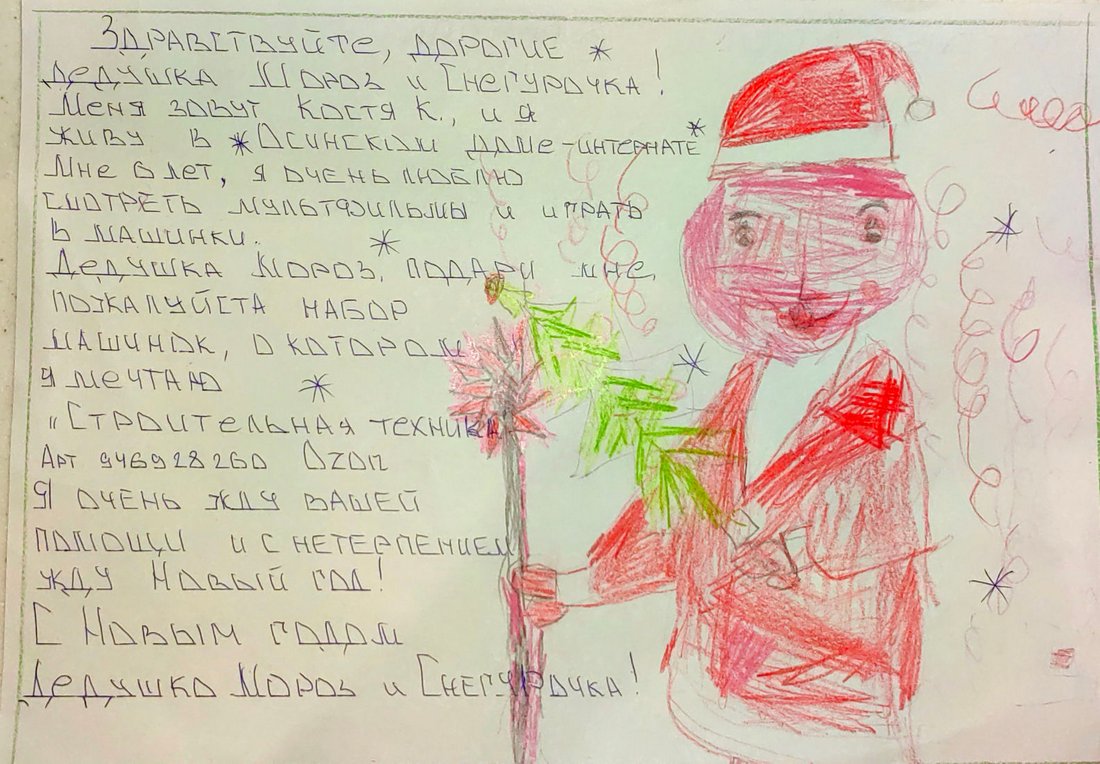 Здравствуйте, дорогие
Дедушка Мороз и Снегурочка!
Меня зовут Костя К., и я
живу в Осинском доме-интернате
Мне 6 лет, я очень люблю
смотреть мультфильмы и играть
в машинки.
Дедушка Мороз, подари мне,
пожалуйста набор
машинок, о котором
я мечтаю
"Строительная техника
Арт 946928260 Ozon
Я очень жду вашей
помощи и с нетерпением
жду Новый год!
С Новым годом
Дедушка Мороз и Снегурочка!